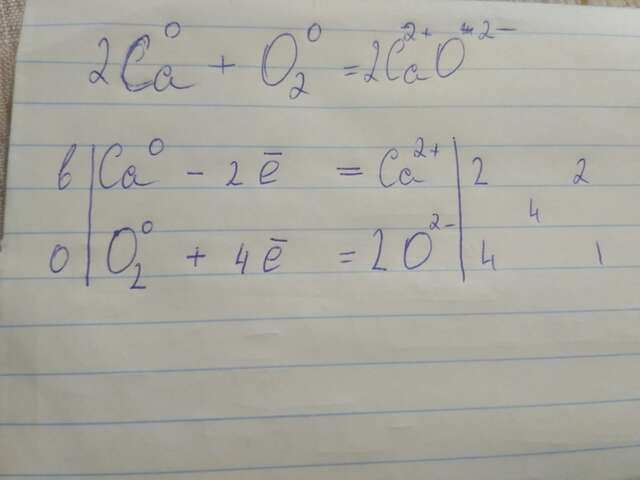 2Ca⁰ + O₂⁰ = 2Ca²⁺O²⁻
в Ca⁰ - 2ē = Ca²⁺ 2 2
4
О O₂⁰ + 4ē = 2O²⁻ 4 1